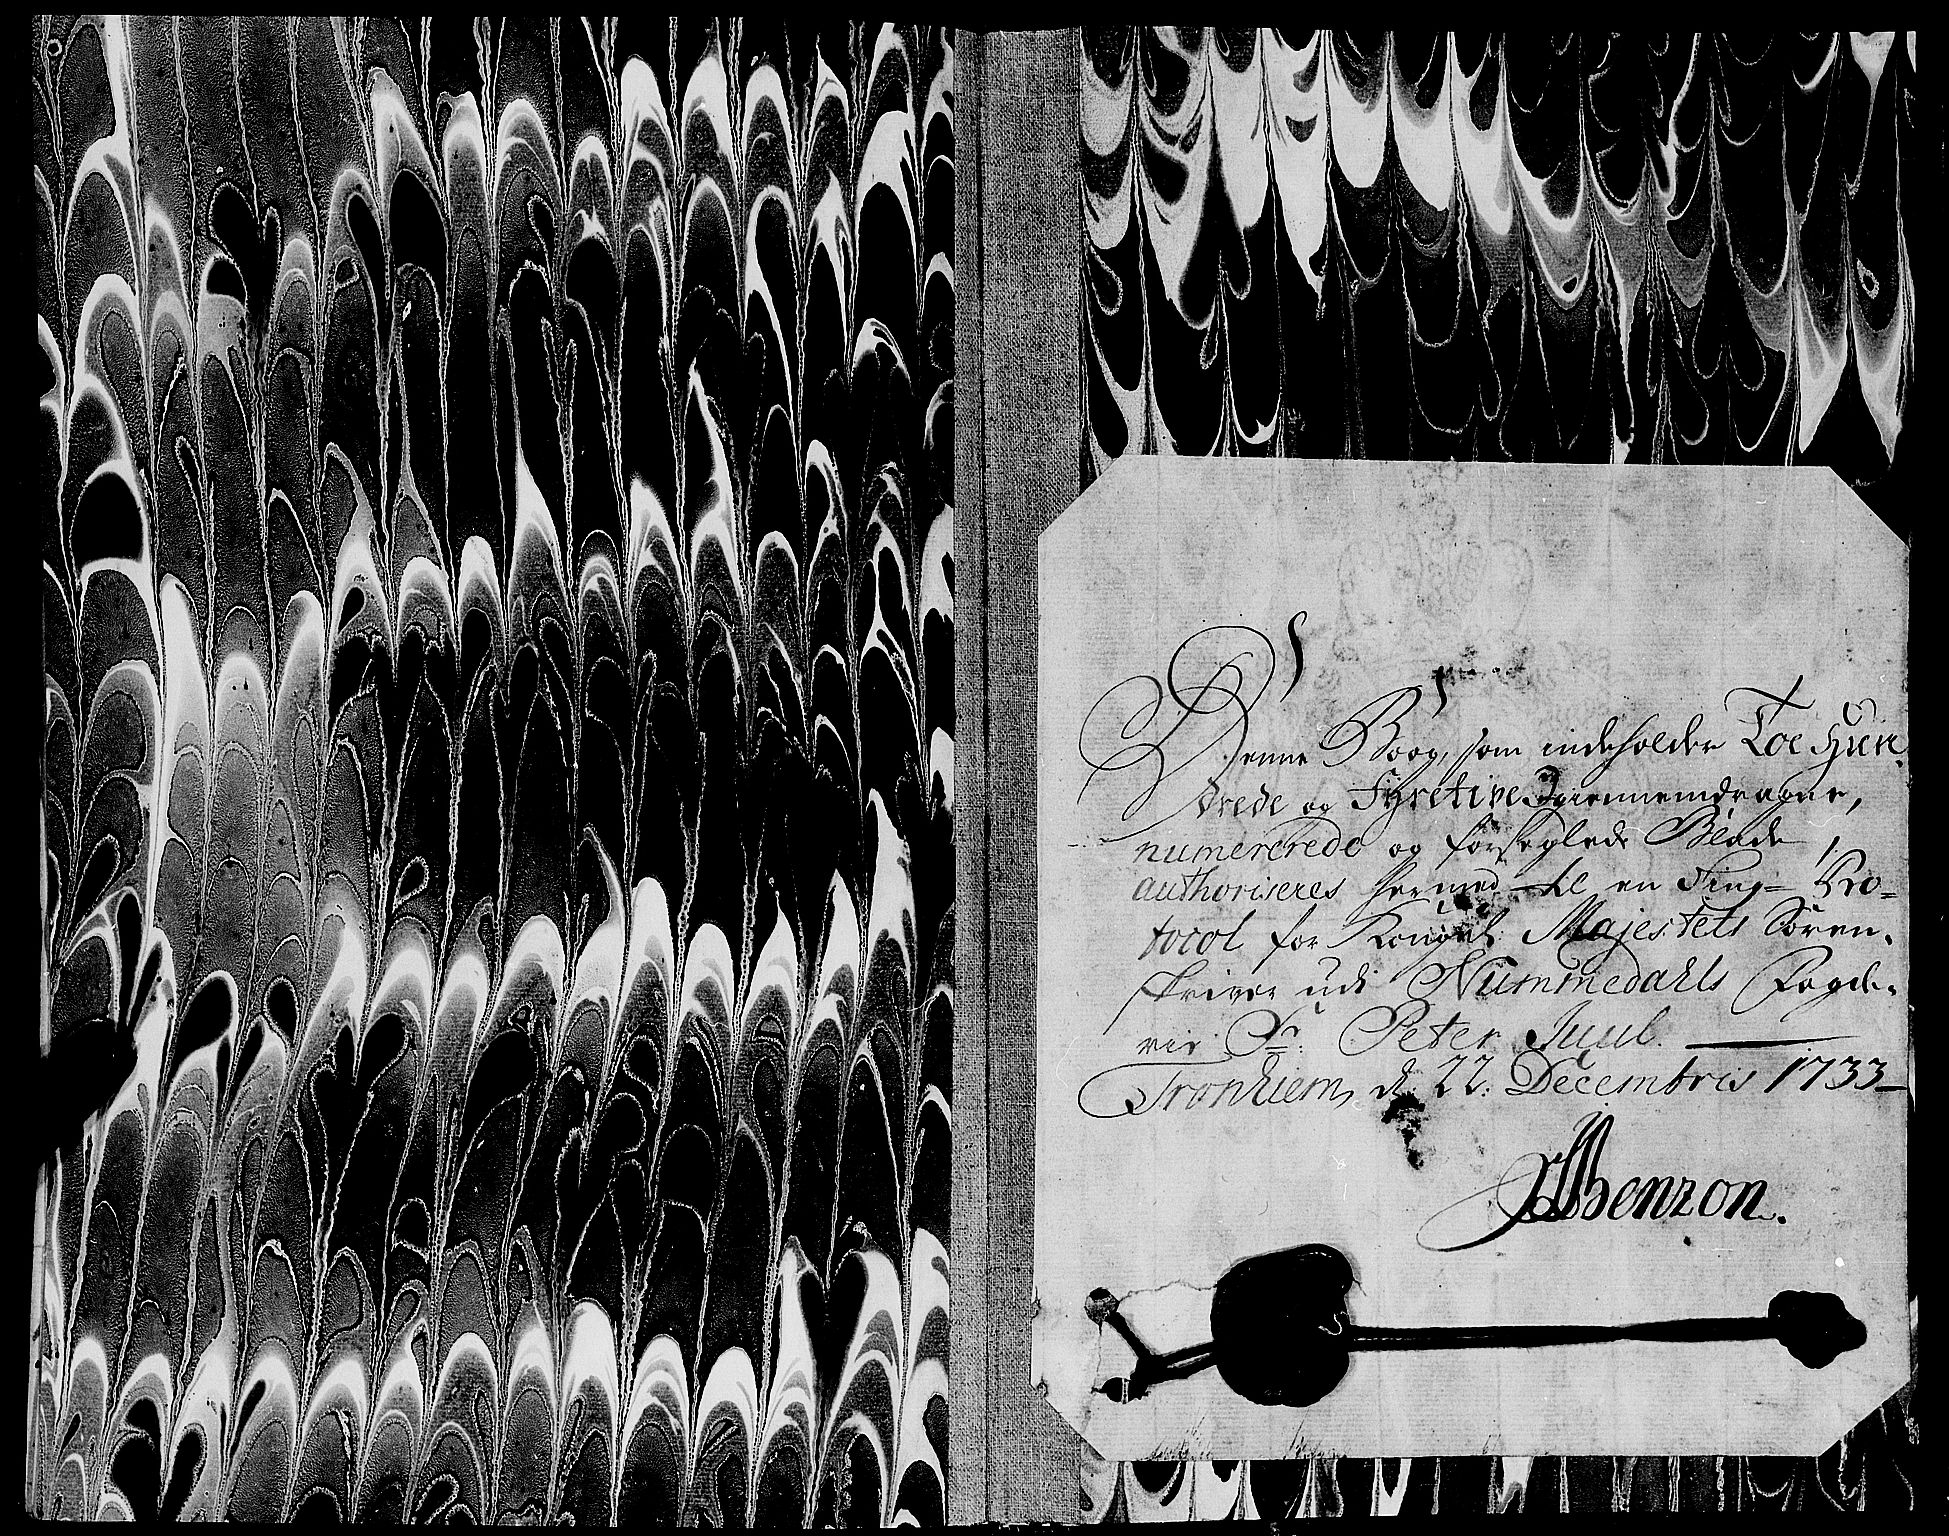 Denne Boog, som indeholder Toe Hun-
drede og Fyretive Igiennemdragne,
numererede og forseglede Blade,
authoriseres hermed til en Ting-Pro-
tocol for Kongel: Majestets Soren-
skriver udi Nummedahls Fogde-
rie Sr. Peter Juul.
Tronhiem, d. 22. Decembris 1733
JBenzon.